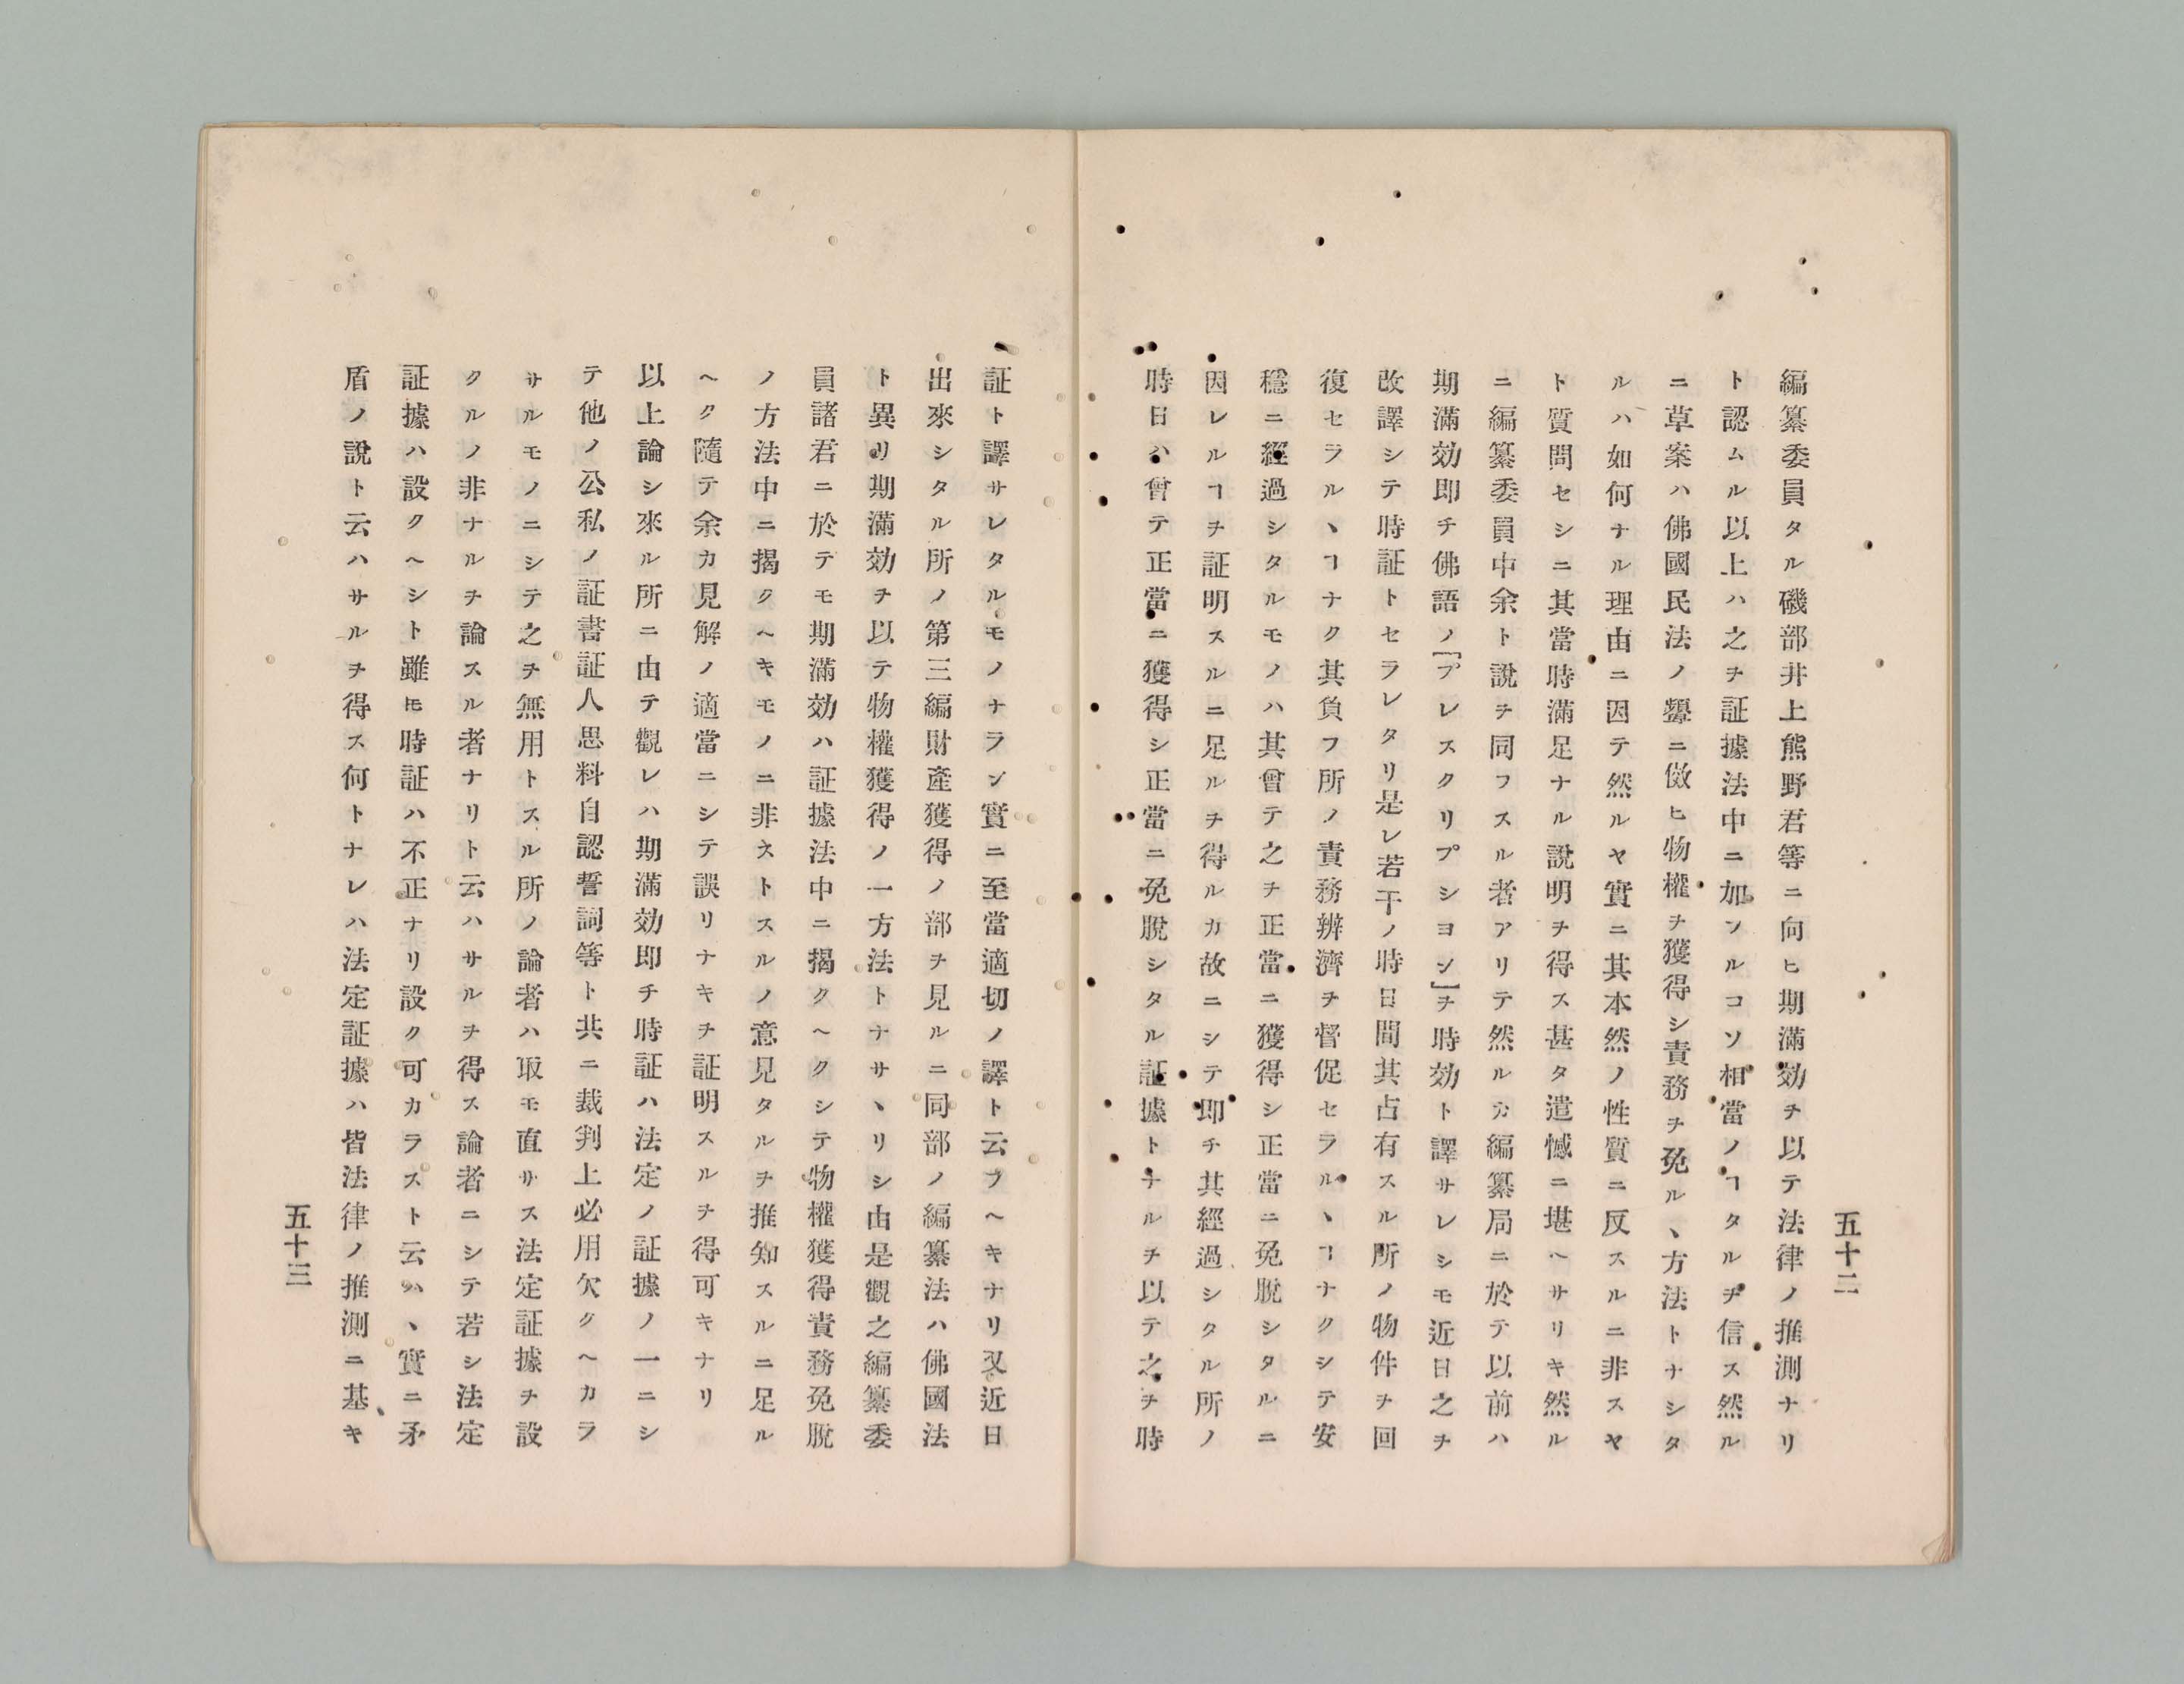 編纂委員タル磯部井上熊野君等ニ向ヒ期滿効ヲ以テ法律ノ推測ナリ
ト認ムル以上ハ之ヲ証據法中ニ加フルコソ相當ノヿタルヲ信ス然ル
ニ草案ハ佛國民法ノ顰ニ倣ヒ物權ヲ獲得シ責務ヲ免ルヽ方法トナシタ
ルハ如何ナル理由ニ因テ然ルヤ實ニ其本然ノ性質ニ反スルニ非スヤ
ト質問セシニ其當時滿足ナル說明ヲ得ス甚タ遣憾ニ堪ヘサリキ然ル
ニ編纂委員中余ト說ヲ同フスル者アリテ然ルカ編纂局ニ於テ以前ハ
期滿効即チ佛語ノ「プレスクリプシヨン」ヲ時効ト譯サレシモ近日之ヲ
改譯シテ時証トセラレタリ是レ若干ノ時日間其占有スル所ノ物件ヲ回
復セラルヽヿナク其負フ所ノ責務辨濟ヲ督促セラルヽヿナクシテ安
穩ニ經過シタルモノハ其曾テ之ヲ正當ニ獲得シ正當ニ免脫シタルニ
因レルヿヲ証明スルニ足ルヲ得ルカ故ニシテ即チ其經過シタル所ノ
時日ハ曾テ正當ニ獲得シ正當ニ免脫シタル証據トナルヲ以テ之ヲ時
五十二
証ト譯サレタルモノナラン實ニ至當適切ノ譯ト云フヘキナリ又近日
出來シタル所ノ第三編財產獲得ノ部ヲ見ルニ同部ノ編纂法ハ佛國法
ト異リ期滿効ヲ以テ物權獲得ノ一方法トナサヽリシ由是觀之編纂委
員諸君ニ於テモ期滿効ハ証據法中ニ揭クヘクシテ物權獲得責務免脫
ノ方法中ニ揭クヘキモノニ非ストスルノ意見タルヲ推知スルニ足ル
ヘク隨テ余カ見解ノ適當ニシテ誤リナキヲ証明スルヲ得可キナリ
以上論シ來ル所ニ由テ觀レハ期滿効即チ時証ハ法定ノ証據ノ一ニシ
テ他ノ公私ノ証書証人思料自認誓詞等ト共ニ裁判上必用欠クヘカラ
サルモノニシテ之ヲ無用トスル所ノ論者ハ取モ直サス法定証據ヲ設
クルノ非ナルヲ論スル者ナリト云ハサルヲ得ス論者ニシテ若シ法定
証據ハ設クヘシト雖𪜈時証ハ不正ナリ設ク可カラスト云ハヽ實ニ矛
盾ノ說ト云ハサルヲ得ス何トナレハ法定証據ハ皆法律ノ推測ニ基キ
五十三